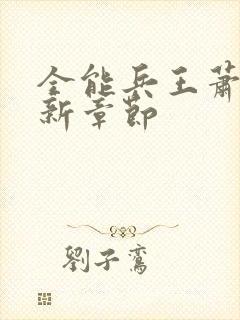 全能兵王蕭
新章節
劉子鸞